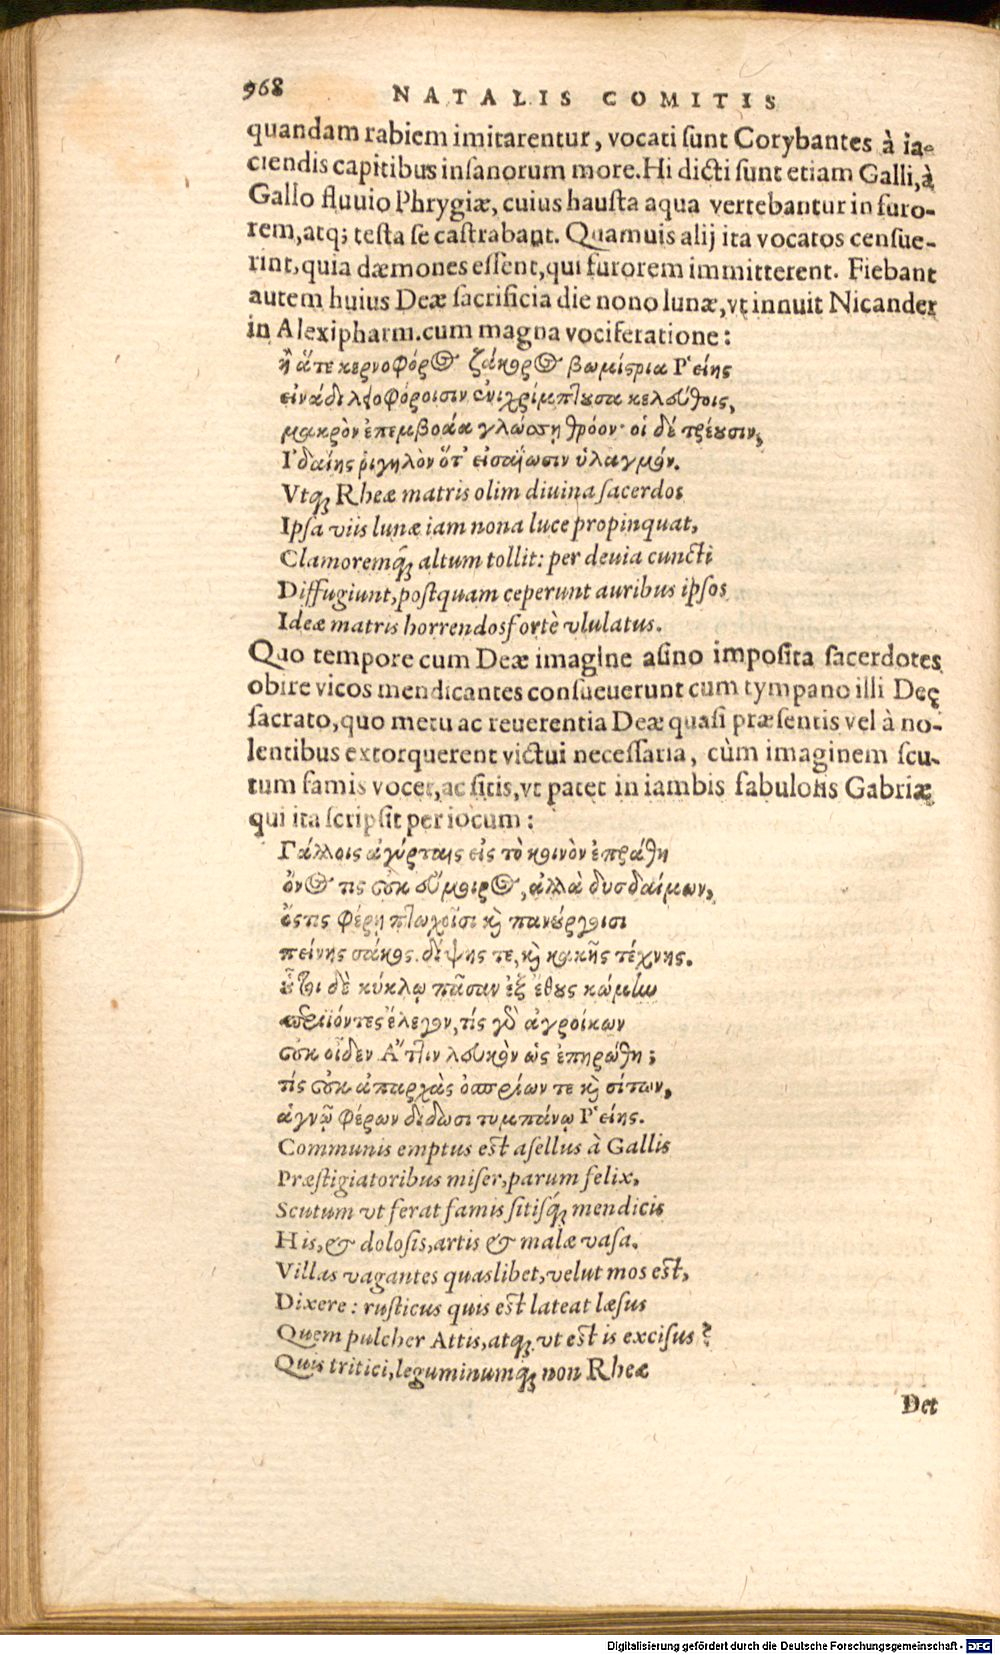 968 NATALIS COMITIS
quandam rabiem imitarentur, vocati sunt Corybantes à ia-
ciendis capitibus insanorum more. Hi dicti sunt etiam Galli, à
Gallo fluuio Phrygiæ, cuius hausta aqua vertebantur in furo-
rem, atq; testa se castrabant. Quamuis alij ita vocatos censue-
rint, quia dæmones essent, qui furorem immitterent. Fiebant
autem huius Deæ sacrificia die nono lunæ, vt innuit Nicander
in Alexipharm. cum magna vociferatione:
ἢ ἅτε κερνοφόρος ζάκορος βωμίςρια Ῥείης
εἰνάδι λαοφόροισιν ἐνιχρίμπτουσα κελεύθοις,
μακρὸν ἐπεμβοάα γλώσση θρόον· οἱ δὲ τρέουσιν,
Ἰδαίης ῥιγηλὸν ὅτ' εἰσαΐωσιν ὑλαγμόν.
Vtq; Rheæ matris olim diuina sacerdos
Ipsa viis lunæ iam nona luce propinquat,
Clamoremq́; altum tollit: per deuia cuncti
Diffugiunt, postquam ceperunt auribus ipsos
Ideæ matris horrendos fortè vlulatus.
Quo tempore cum Deæ imagine asino imposita sacerdotes
obire vicos mendicantes consueuerunt cum tympano illi Deę
sacrato, quo metu ac reuerentia Deæ quasi præsentis vel à no-
lentibus extorquerent victui necessaria, cùm imaginem scu-
tum famis vocet, ac sitis, vt patet in iambis fabulosis Gabriæ
qui ita scripsit per iocum:
Γάλλοις ἀγύρταις εἰς τὸ κοινὸν ἐπράθη
ὄνος τις οὐκ εὔμοιρος, ἀλλὰ δυσδαίμων,
ὅςτις φέρῃ πτωχοῖσι καὶ πανούργοισι
πείνης σάκος. δίψης τε, καὶ κακῆς τέχνης.
οὗτοι δὲ κύκλῳ πᾶσαν ἐξ ἔθους κώμην
περιϊόντες ἔλεγον, τίς γὰρ ἀγροίκων
οὐκ οἶδεν Ἄττιν λευκὸν ὡς ἐπηρώθη;
τίς οὐκ ἀπαρχὰς ὀσπρίων τε καὶ σίτων,
ἁγνῷ φέρων δίδωσι τυμπάνῳ Ῥείης.
Communis emptus est asellus à Gallis
Præstigiatoribus miser, parum felix,
Scutum vt ferat famis sitisq́; mendicis
His, & dolosis, artis & malæ vasa.
Villas vagantes quaslibet, velut mos est,
Dixere: rusticus quis est lateat læsus
Quem pulcher Attis, atq; vt est is excisus?
Quis tritici, leguminumq́; non Rheæ
Det
Digitalisierung gefördert durch die Deutsche Forschungsgemeinschaft - DFG